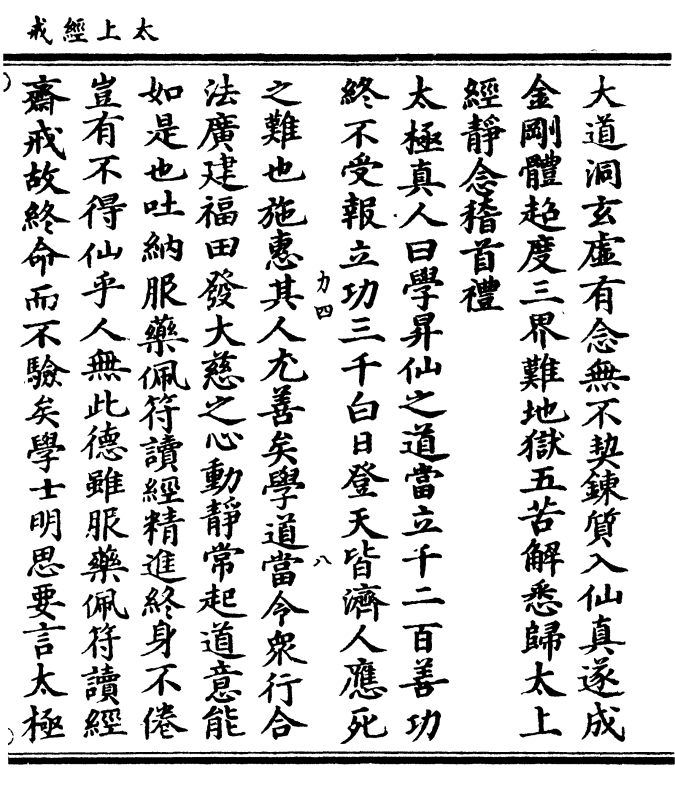 太上經戒
大道洞玄虛有念無不契鍊質入仙真遂成
金剛體超度三界難地獄五苦解悉歸太上
經靜念稽首禮
太極真人曰學昇仙之道當立千二百善功
終不受報立功三千白日登天皆濟人應死
力四
八
之難也施惠其人尤善矣學道當令衆行合
法廣建福田發大慈之心動靜常起道意能
如是也吐納服藥佩符讀經精進終身不倦
豈有不得仙乎人無此德雖服藥佩符讀經
齋戒故終命而不驗矣學士明思要言太極